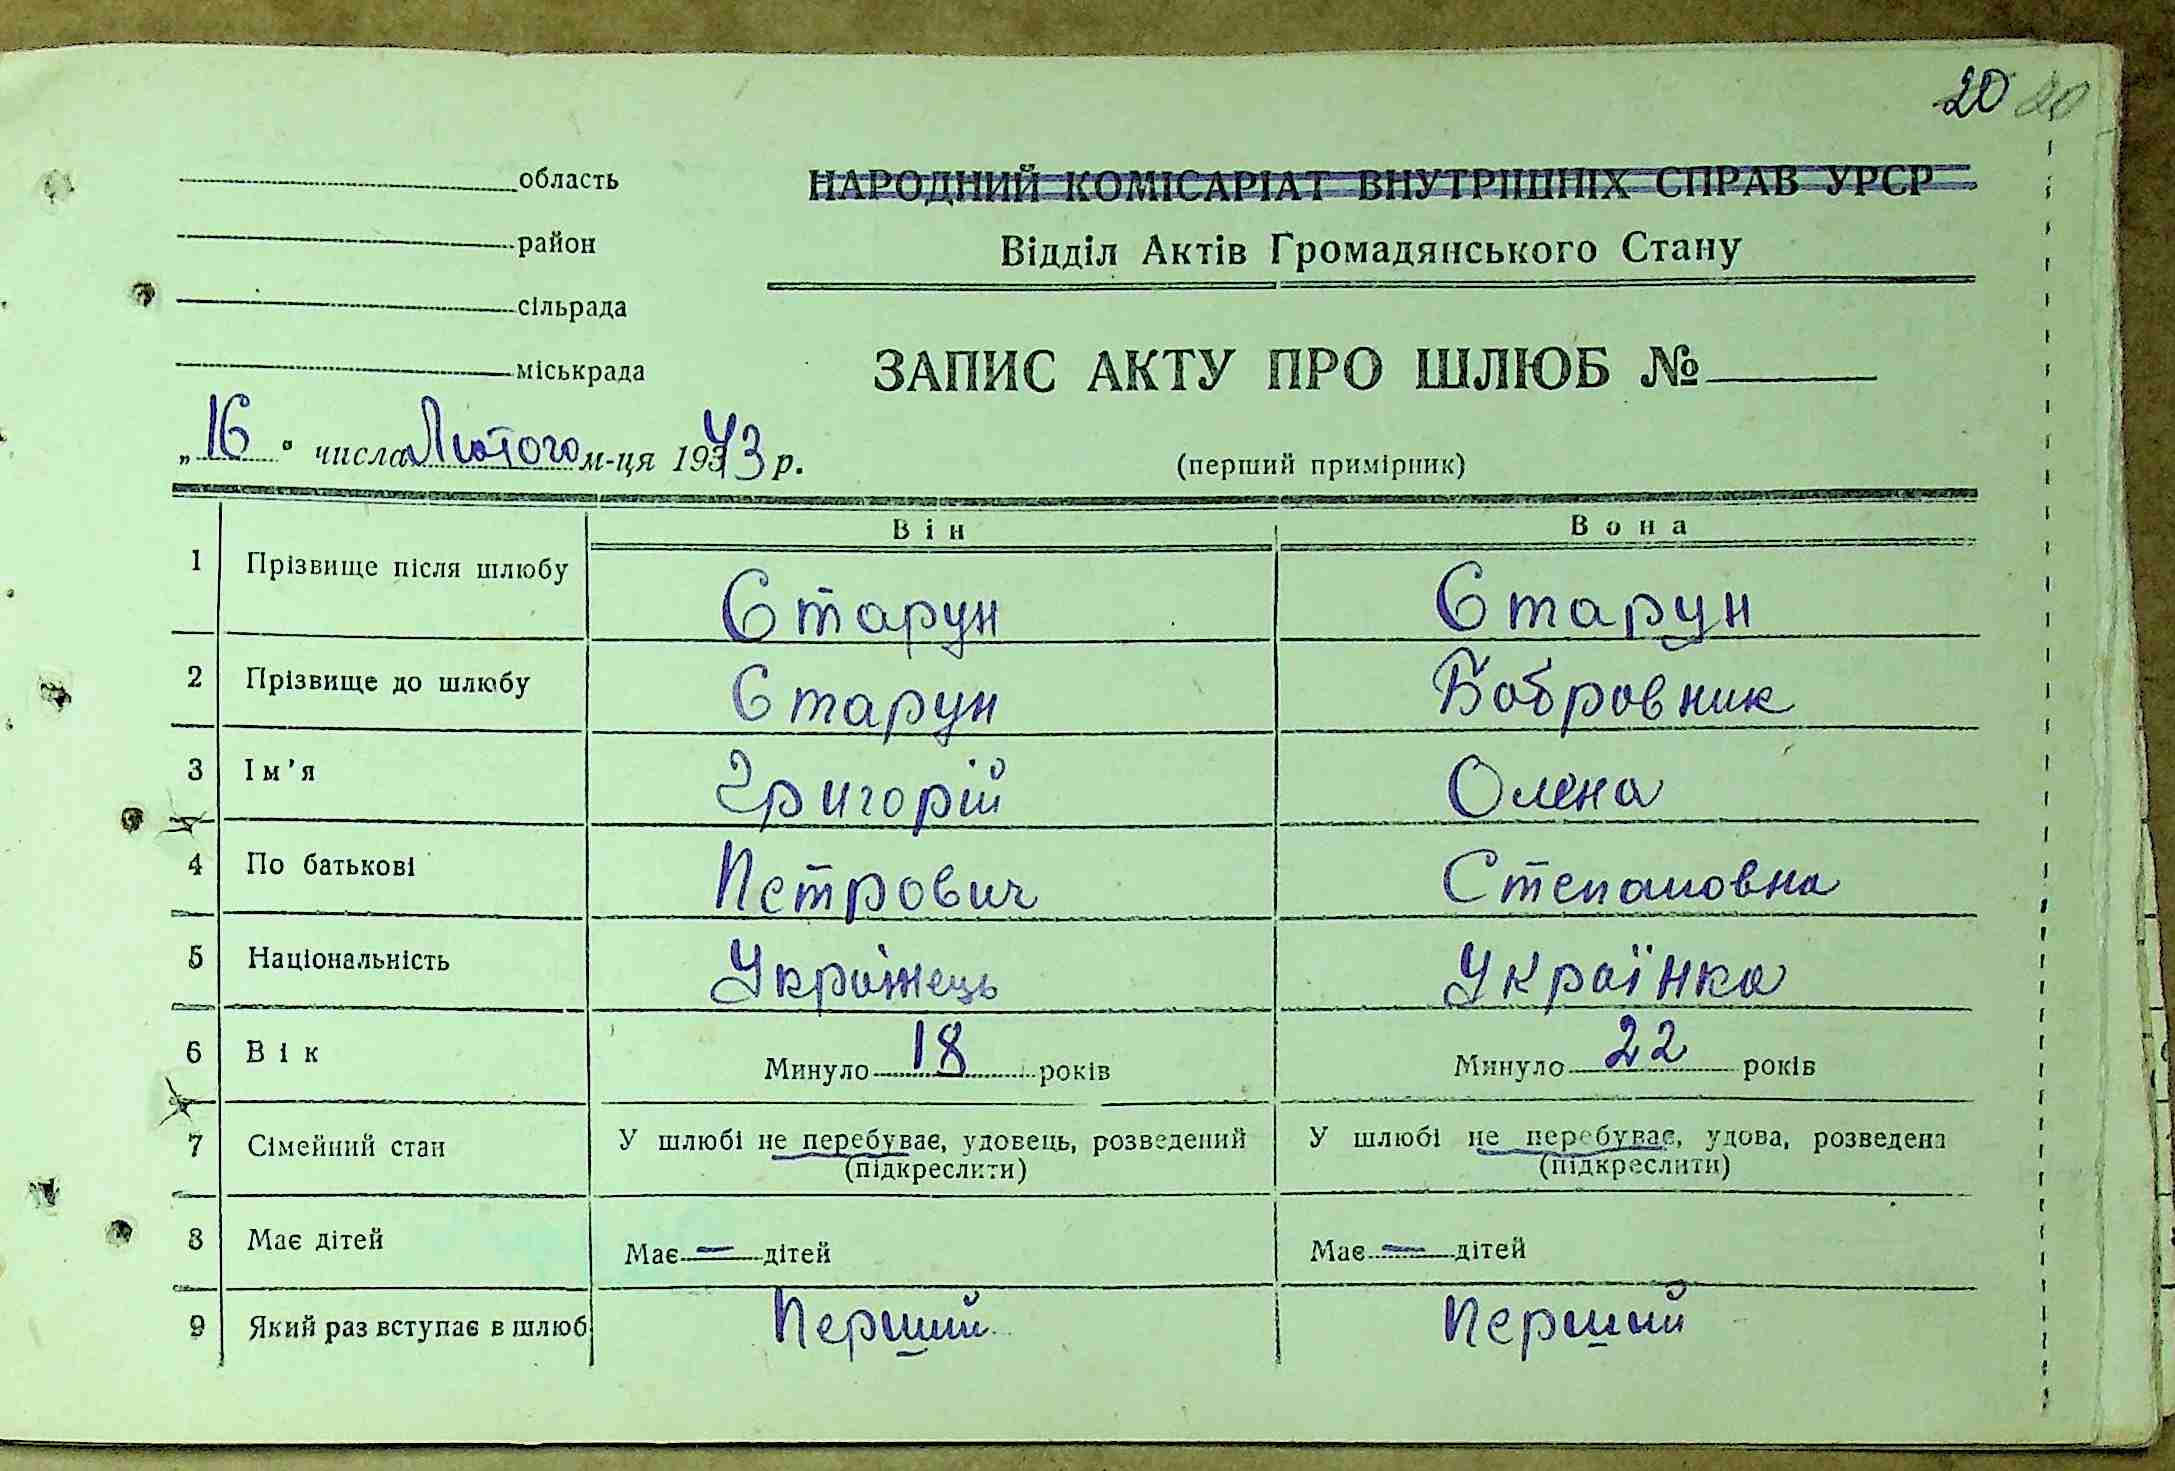 20 20
область
НАРОДНИЙ КОМІСАРІАТ ВНУТРІШНІХ СПРАВ УРСР
район
Відділ Актів Громадянського Стану
сільрада
міськрада
ЗАПИС АКТУ ПРО ШЛЮБ №
„16“ числа Лютого м-ця 1943 р.
(перший примірник)
Він Вона
1 Прізвище після шлюбу Старун Старун
2 Прізвище до шлюбу Старун Бобровник
3 Ім’я Григорій Олена
4 По батькові Петрович Степановна
5 Національність Українець Українка
6 Вік Минуло 18 років Минуло 22 років
7 Сімейний стан У шлюбі не перебуває, удовець, розведений У шлюбі не перебуває, удова, розведена
(підкреслити) (підкреслити)
8 Має дітей Має — дітей Має — дітей
9 Який раз вступає в шлюб Перший Перший